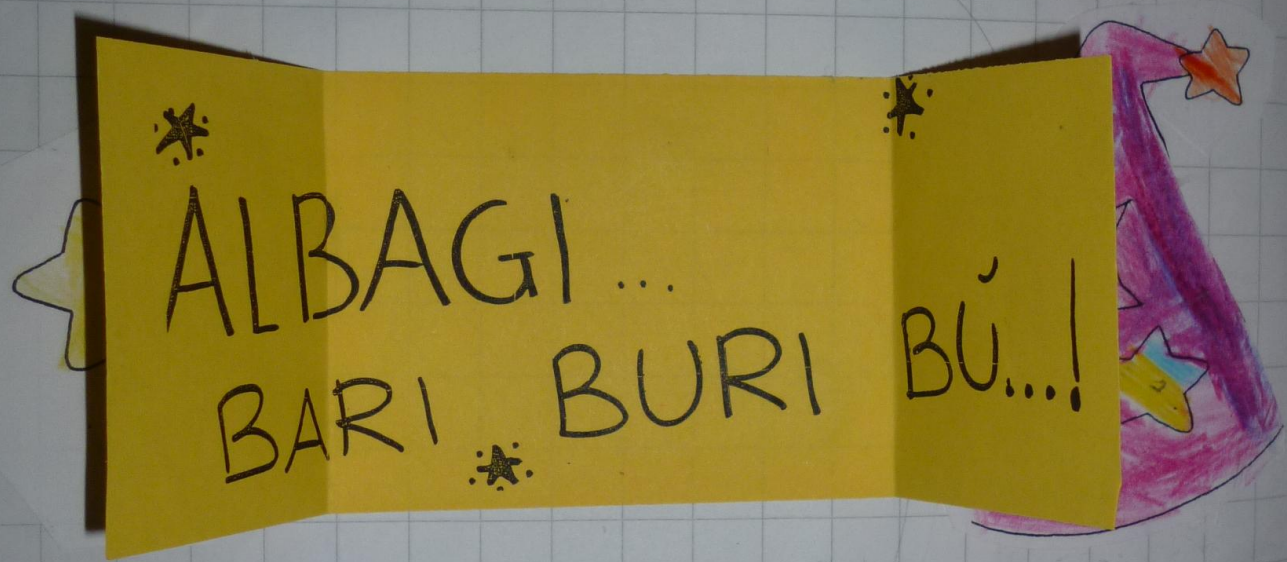 ALBAGI...
BARI BURI BÚ...!